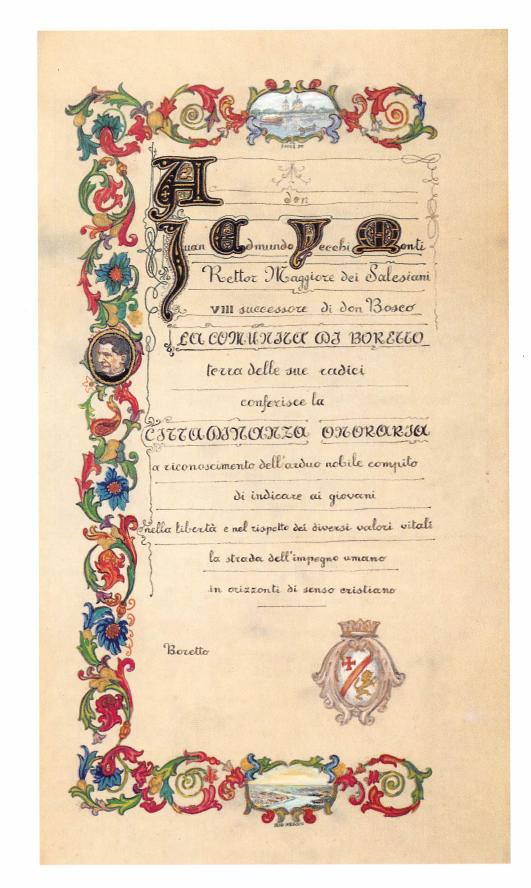 A
don
Juan Edmundo Vecchi Monti
Rettor Maggiore dei Salesiani
VIII successore di don Bosco
LA COMUNITÀ DI BORETTO
terra delle sue radici
conferisce la
CITTADINANZA ONORARIA
a riconoscimento dell'arduo nobile compito
di indicare ai giovani
nella libertà e nel rispetto dei diversi valori vitali
la strada dell'impegno umano
in orizzonti di senso cristiano
Boretto